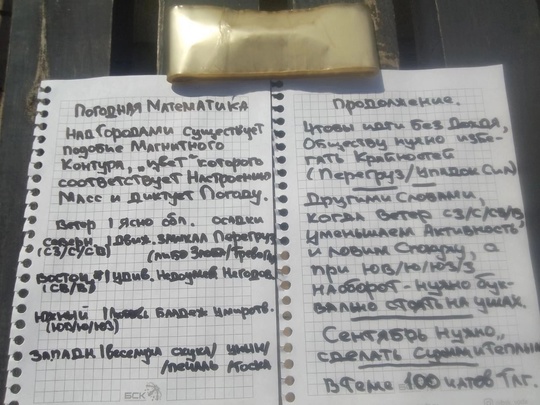 Погодная Математика
Над Городами существует
подобие Магнитного
Контура, „цвет" которого
соответствует Настроению
Масс и диктует Погоду.
Ветер | Ясно обл. осадки
Северн | Движ. Перегруз
(СЗ/С/СВ) (либо Злоба/Тревога)
Восточн | Удив. Недоумен Негодов
(СВ/В)
Южный | Умиротв.
(ЮВ/Ю/ЮЗ)
Западн | Веселуха скука/ уныни/
/печаль тоска
БСК
Продолжение.
Чтобы идти без Дождя,
Обществу нужно избе-
гать Крайностей
(Перегруз/Упадок Сил)
Другими Словами,
когда Ветер СЗ/С/СВ/В
уменьшаем Активность,
и ловим а
при ЮВ/Ю/ЮЗ/З
наоборот - нужно бук-
вально стоять на ушах.
Сентябрь нужно
сделать Сухим и Теплым
В теме 100 чатов Тлг.
БСК